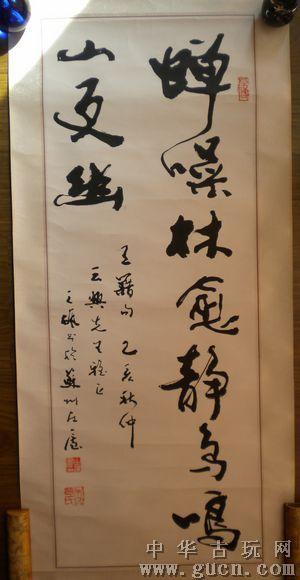 蝉噪林愈静鸟鸣
山更幽
王籍句 乙亥秋仲
興先生雅正
王 书於蘇州 廬
中华古玩网
www.gucn.com